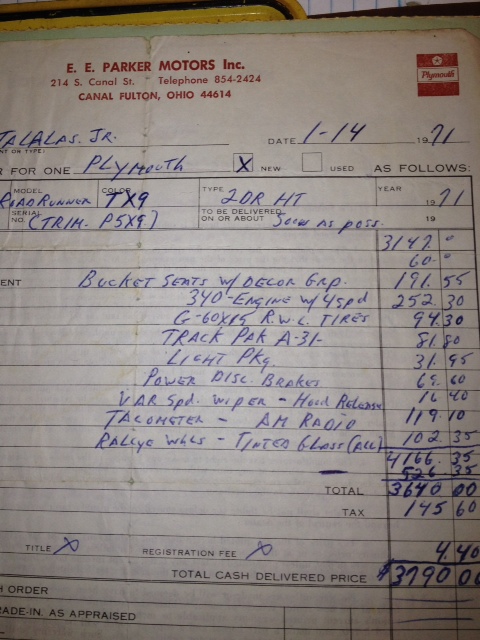 E. E. PARKER MOTORS Inc.
214 S. Canal St. Telephone 854-2424
CANAL FULTON, OHIO 44614
Plymouth
TALALAS. JR. DATE 1-14 1971
NT OR TYPE:
R FOR ONE PLYMOUTH X NEW USED AS FOLLOWS:
MODEL COLOR TYPE YEAR
ROADRUNNER TX9 2DR HT 1971
SERIAL NO. (TRIM. P5X9) TO BE DELIVERED ON OR ABOUT Soon as poss. 19
3147. 0
60- 0
ENT BUCKET SEATS W/DECOR GRP. 191. 55
340-ENGINE W/4spd 252. 30
G-60X15 R.W.L. TIRES 94 30
TRACK PAK A-31- 81 80
LIGHT PKg 31. 95
POWER DISC. BRAKES 69. 60
VAR Spd. wiper - Hood Release 16 40
TACOMETER - AM RADIO 119. 10
RALLye Whls - TINTED GLASS (ALL) 102. 35
4166. 35
526 35
TOTAL 3640 00
TAX 145 60
TITLE X REGISTRATION FEE X 4.40
TOTAL CASH DELIVERED PRICE $3790 00
H ORDER
RADE-IN. AS APPRAISED